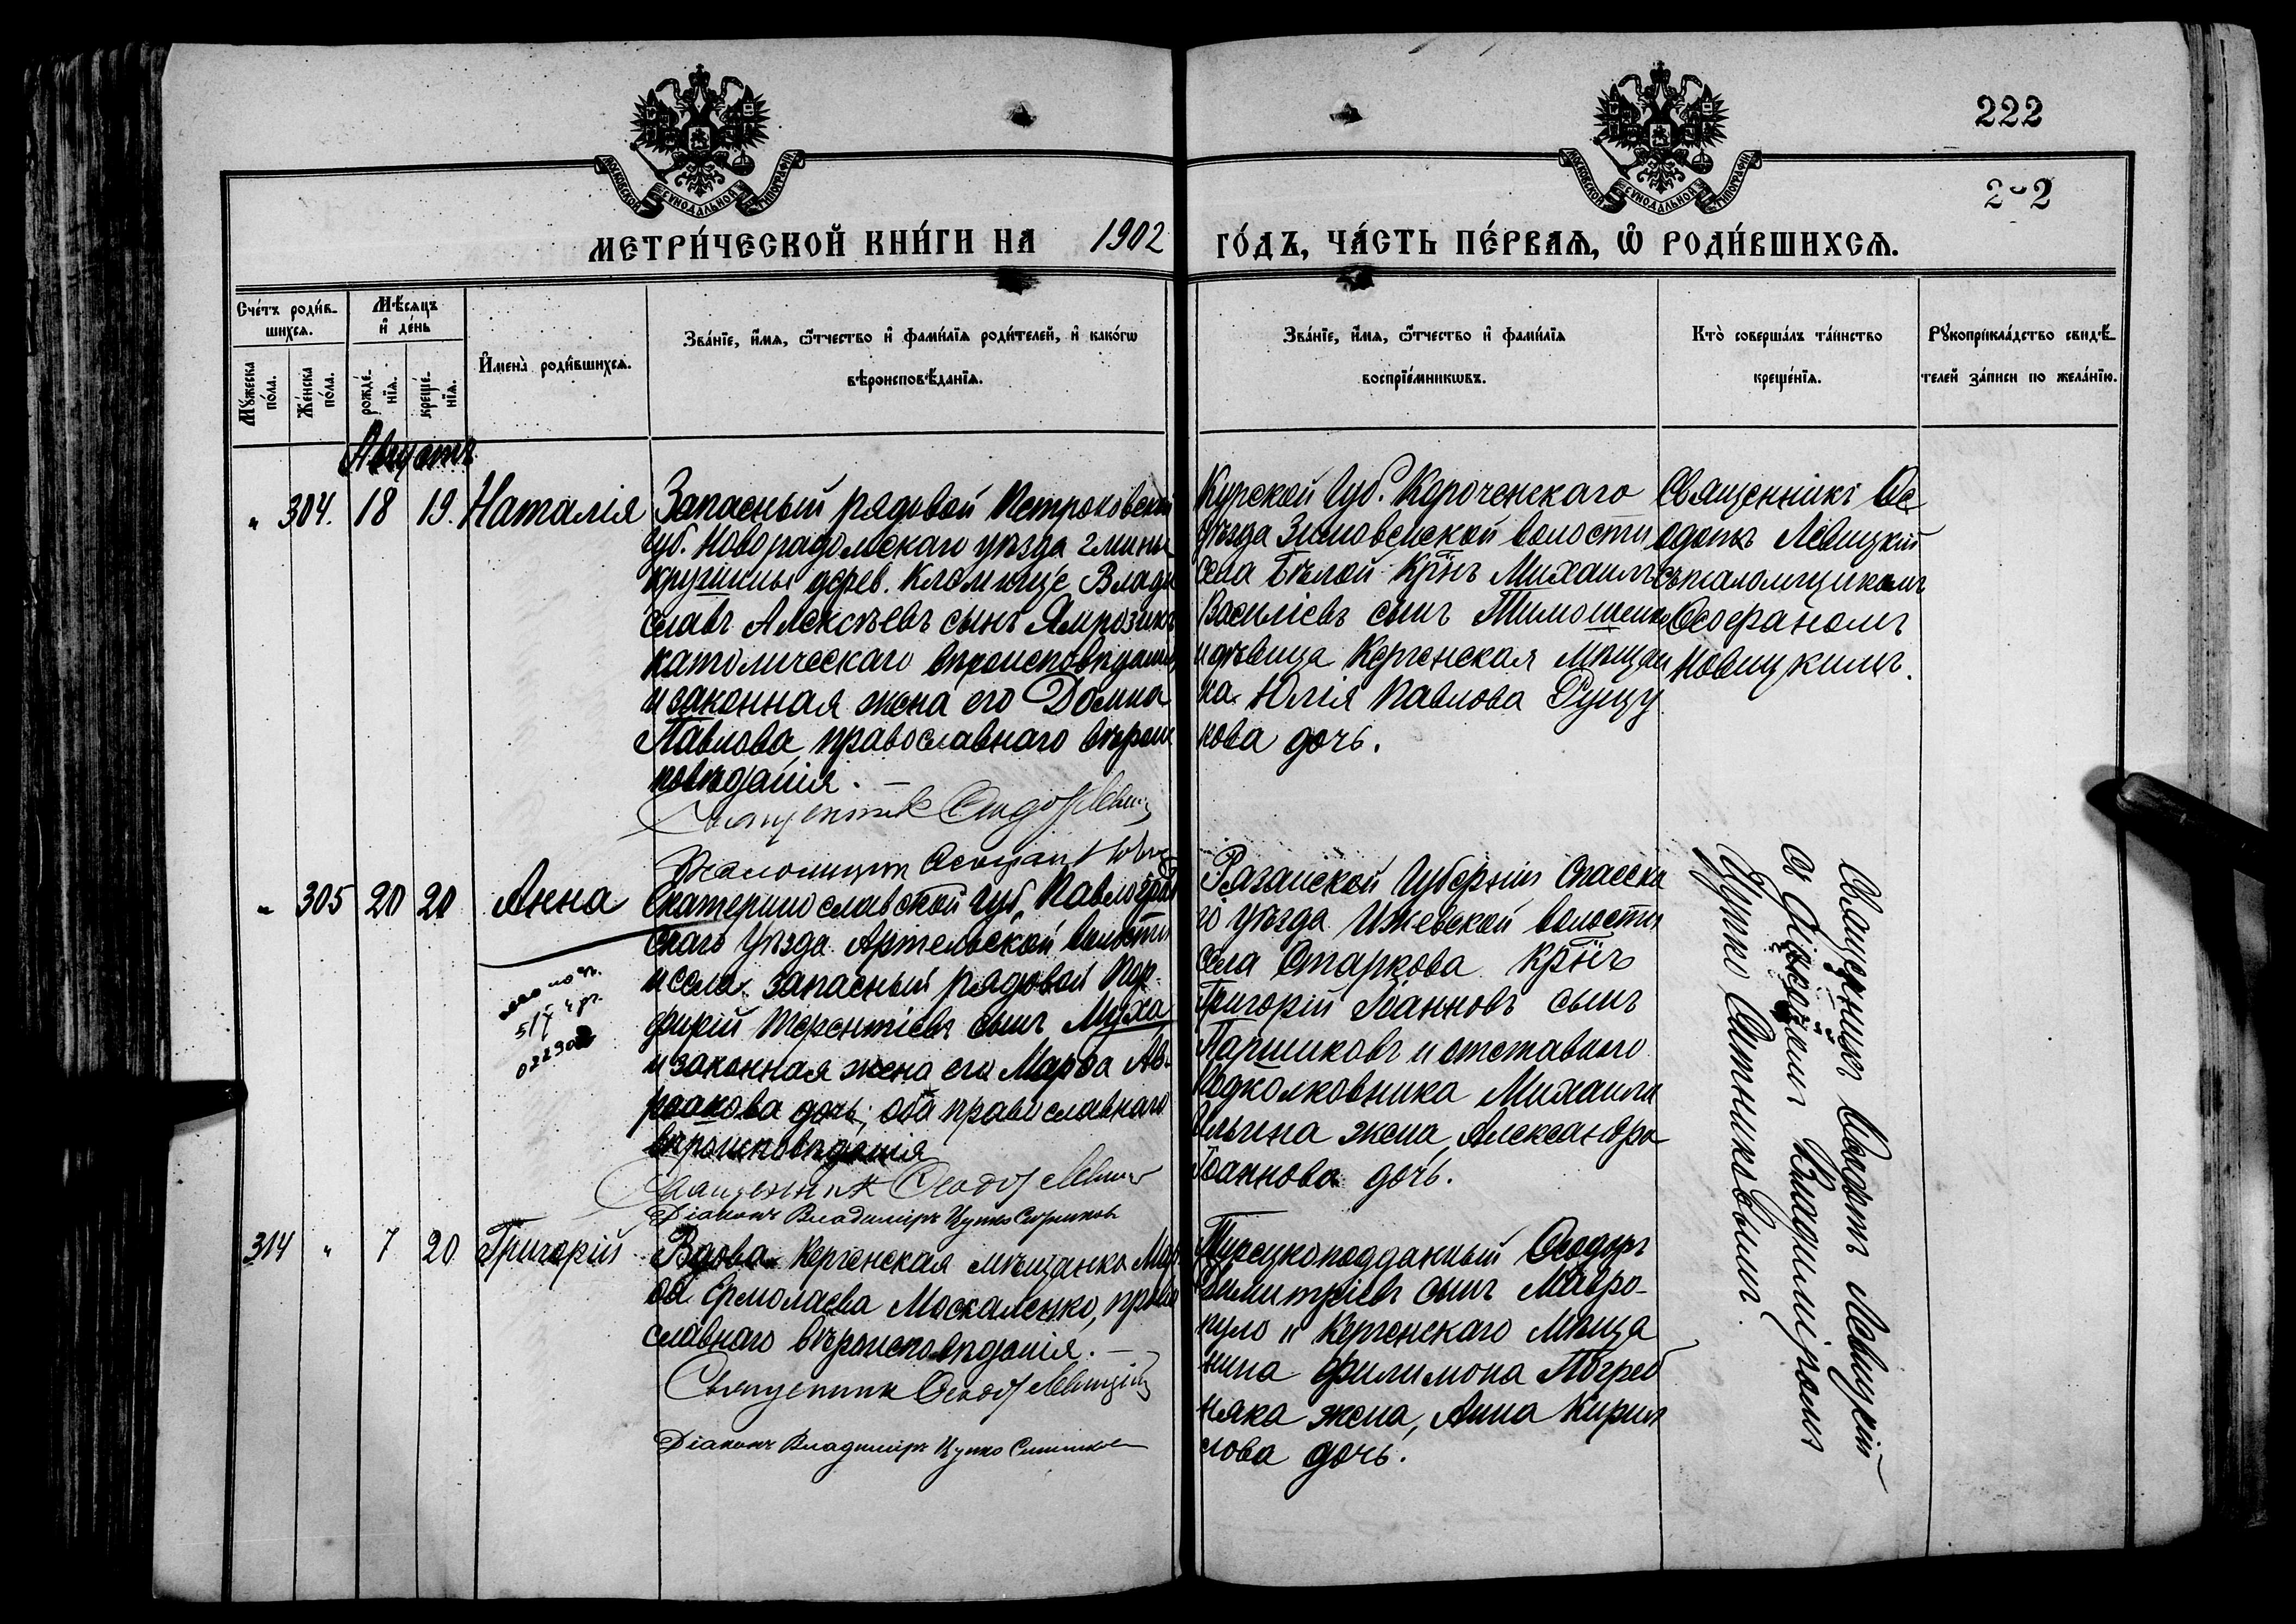 222
2-2
МОСКОВСКОЙ СѴНОДАЛЬНОЙ ТИПОГРАФІИ
МОСКОВСКОЙ СѴНОДАЛЬНОЙ ТИПОГРАФІИ
МЕТРИ́ЧЕСКОЙ КНИ́ГИ НА 1902 ГО́ДЪ, ЧА́СТЬ ПЕ́РВАѦ, Ѡ҆ РОДИ́ВШИХСѦ.
Сче́тъ роди́в-
шихсѧ.
Мꙋ́жеска по́ла.
Же́нска по́ла.
Мѣ́сѧцъ
и҆ де́нь
рожде́-
нїѧ.
креще́-
нїѧ.
И҆мена̀ роди́вшихсѧ.
Зва́нїе, и҆́мѧ, ѻ҆́тчество и҆ фами́лїѧ роди́телей, и҆ како́гѡ
вѣроисповѣ́данїѧ.
Зва́нїе, и҆́мѧ, ѻ҆́тчество и҆ фами́лїѧ
воспрїе́мникѡвъ.
Кто̀ соверша́лъ та́инство
креще́нїѧ.
Рꙋкоприкла́дство свидѣ́-
телей за́писи по жела́нїю.
Августъ
„ 304. 18 19. Наталія
Запасный рядовой Петроковской
губ. Новорадомскаго уѣзда гмины
кружины дерев. Кломнице Влади
славъ Алексѣевъ сынъ Ямрозикъ
католическаго вѣроисповѣданія,
и законная жена его Домна
Павлова, православнаго вѣроис
повѣданія. —
Священникъ Ѳеодотъ Левиц
Псаломщикъ Ѳеофанъ Новиц
Курской Губ. Короченскаго
уѣзда Зимовенской волости
села Бѣлой Кр̃нъ Михаилъ
Василіевъ сынъ Тимошенко
и дѣвица Керченская мѣщан
ка Юлія Павлова Рущу
кова дочь.
Священникъ Ѳе
одотъ Левицкій
съ псаломщикомъ
Ѳеофаномъ
Новицкимъ.
„ 305 20 20 Анна
Екатеринославской губ. Павлоград
скаго Уѣзда Артельской волости
и села запасный рядовой Пор-
фирій Терентіевъ сынъ Муха
и законная жена его Марѳа Ав-
раакова дочь, оба православнаго
вѣроисповѣданія
Священникъ Ѳеодотъ Левиц
Діаконъ Владиміръ Цупко Ситников
Рязанской Губерніи Спасска
го уѣзда Ижевской волости
села Старкова Кр̃нъ
Григорій Іоанновъ сынъ
Паршиковъ и отставного
подполковника Михаила
Ильина жена, Александра
Іоаннова дочь.
Священникъ Ѳеодотъ Левицкій
съ Діакономъ Владиміромъ
Цупко Ситниковымъ.
314 „ 7 20 Григорій
Вдова Керченская мѣщанка Мар
ѳа Ермолаева Москаленко, право
славнаго вѣроисповѣданія. —
Священникъ Ѳеодотъ Левицкій
Діаконъ Владиміръ Цупко Ситников
Турецкоподданный Ѳеодоръ
Димитріевъ сынъ Мавро-
пуло и Керченскаго мѣща
нина Филимона Погреб
няка жена, Анна Кирил
лова дочь.